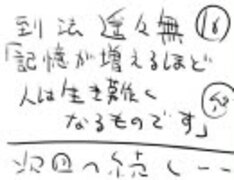 到法遥々無 ⑯
「記憶が増えるほど
人は生き英らく
なるものです」
次回へ続く--